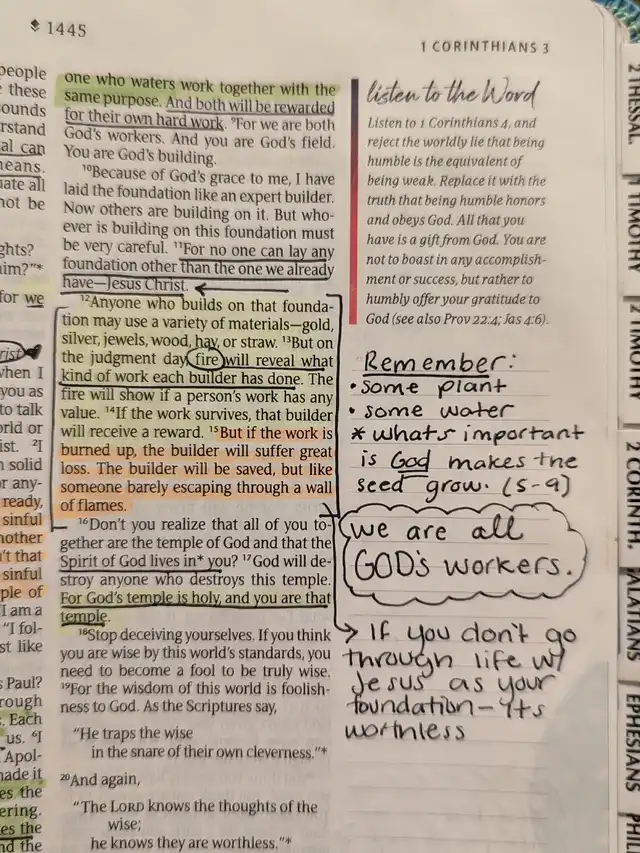 1445
1 CORINTHIANS 3
people
these
ounds
rstand
al can
neans.
uate all
not be
ghts?
im?"*
for we
rist
when I
you as
to talk
orld or
ist. ²I
n solid
r any-
ready,
sinful
nother
n't that
sinful
ple of
I am a
"I fol-
st like
s Paul?
rough
. Each
us. ⁶I
Apol-
made it
es the
ering.
es the
nd the
one who waters work together with the
same purpose. And both will be rewarded
for their own hard work. ⁹For we are both
God's workers. And you are God's field.
You are God's building.
¹⁰Because of God's grace to me, I have
laid the foundation like an expert builder.
Now others are building on it. But who-
ever is building on this foundation must
be very careful. ¹¹For no one can lay any
foundation other than the one we already
have—Jesus Christ.
¹²Anyone who builds on that founda-
tion may use a variety of materials—gold,
silver, jewels, wood, hay, or straw. ¹³But on
the judgment day, fire will reveal what
kind of work each builder has done. The
fire will show if a person's work has any
value. ¹⁴If the work survives, that builder
will receive a reward. ¹⁵But if the work is
burned up, the builder will suffer great
loss. The builder will be saved, but like
someone barely escaping through a wall
of flames.
¹⁶Don't you realize that all of you to-
gether are the temple of God and that the
Spirit of God lives in* you? ¹⁷God will de-
stroy anyone who destroys this temple.
For God's temple is holy, and you are that
temple.
¹⁸Stop deceiving yourselves. If you think
you are wise by this world's standards, you
need to become a fool to be truly wise.
¹⁹For the wisdom of this world is foolish-
ness to God. As the Scriptures say,
"He traps the wise
in the snare of their own cleverness."*
²⁰And again,
"The LORD knows the thoughts of the
wise;
he knows they are worthless."*
listen to the Word
Listen to 1 Corinthians 4, and
reject the worldly lie that being
humble is the equivalent of
being weak. Replace it with the
truth that being humble honors
and obeys God. All that you
have is a gift from God. You are
not to boast in any accomplish-
ment or success, but rather to
humbly offer your gratitude to
God (see also Prov 22:4; Jas 4:6).
Remember:
• some plant
• some water
* whats important
is God makes the
seed grow. (5-9)
we are all
GOD's workers.
→ If you don't go
through life w/
Jesus as your
foundation - its
worthless
2 THESSAL
1 TIMOTHY
2 TIMOTHY
2 CORINTH.
GALATIANS
EPHESIANS
PHIL